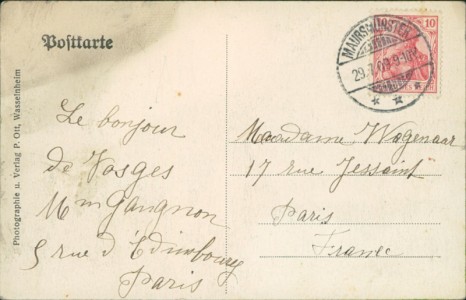 Postkarte
MAURSMÜNSTER
29.7.09.9-10V.
10
Le bonjour
de Vosges
Mm Gangnon
5 rue d'Edimbourg
Paris
Madame Wagenaar
17 rue Jessaint
Paris
France
Photographie u. Verlag P. Ott, Wasselnheim